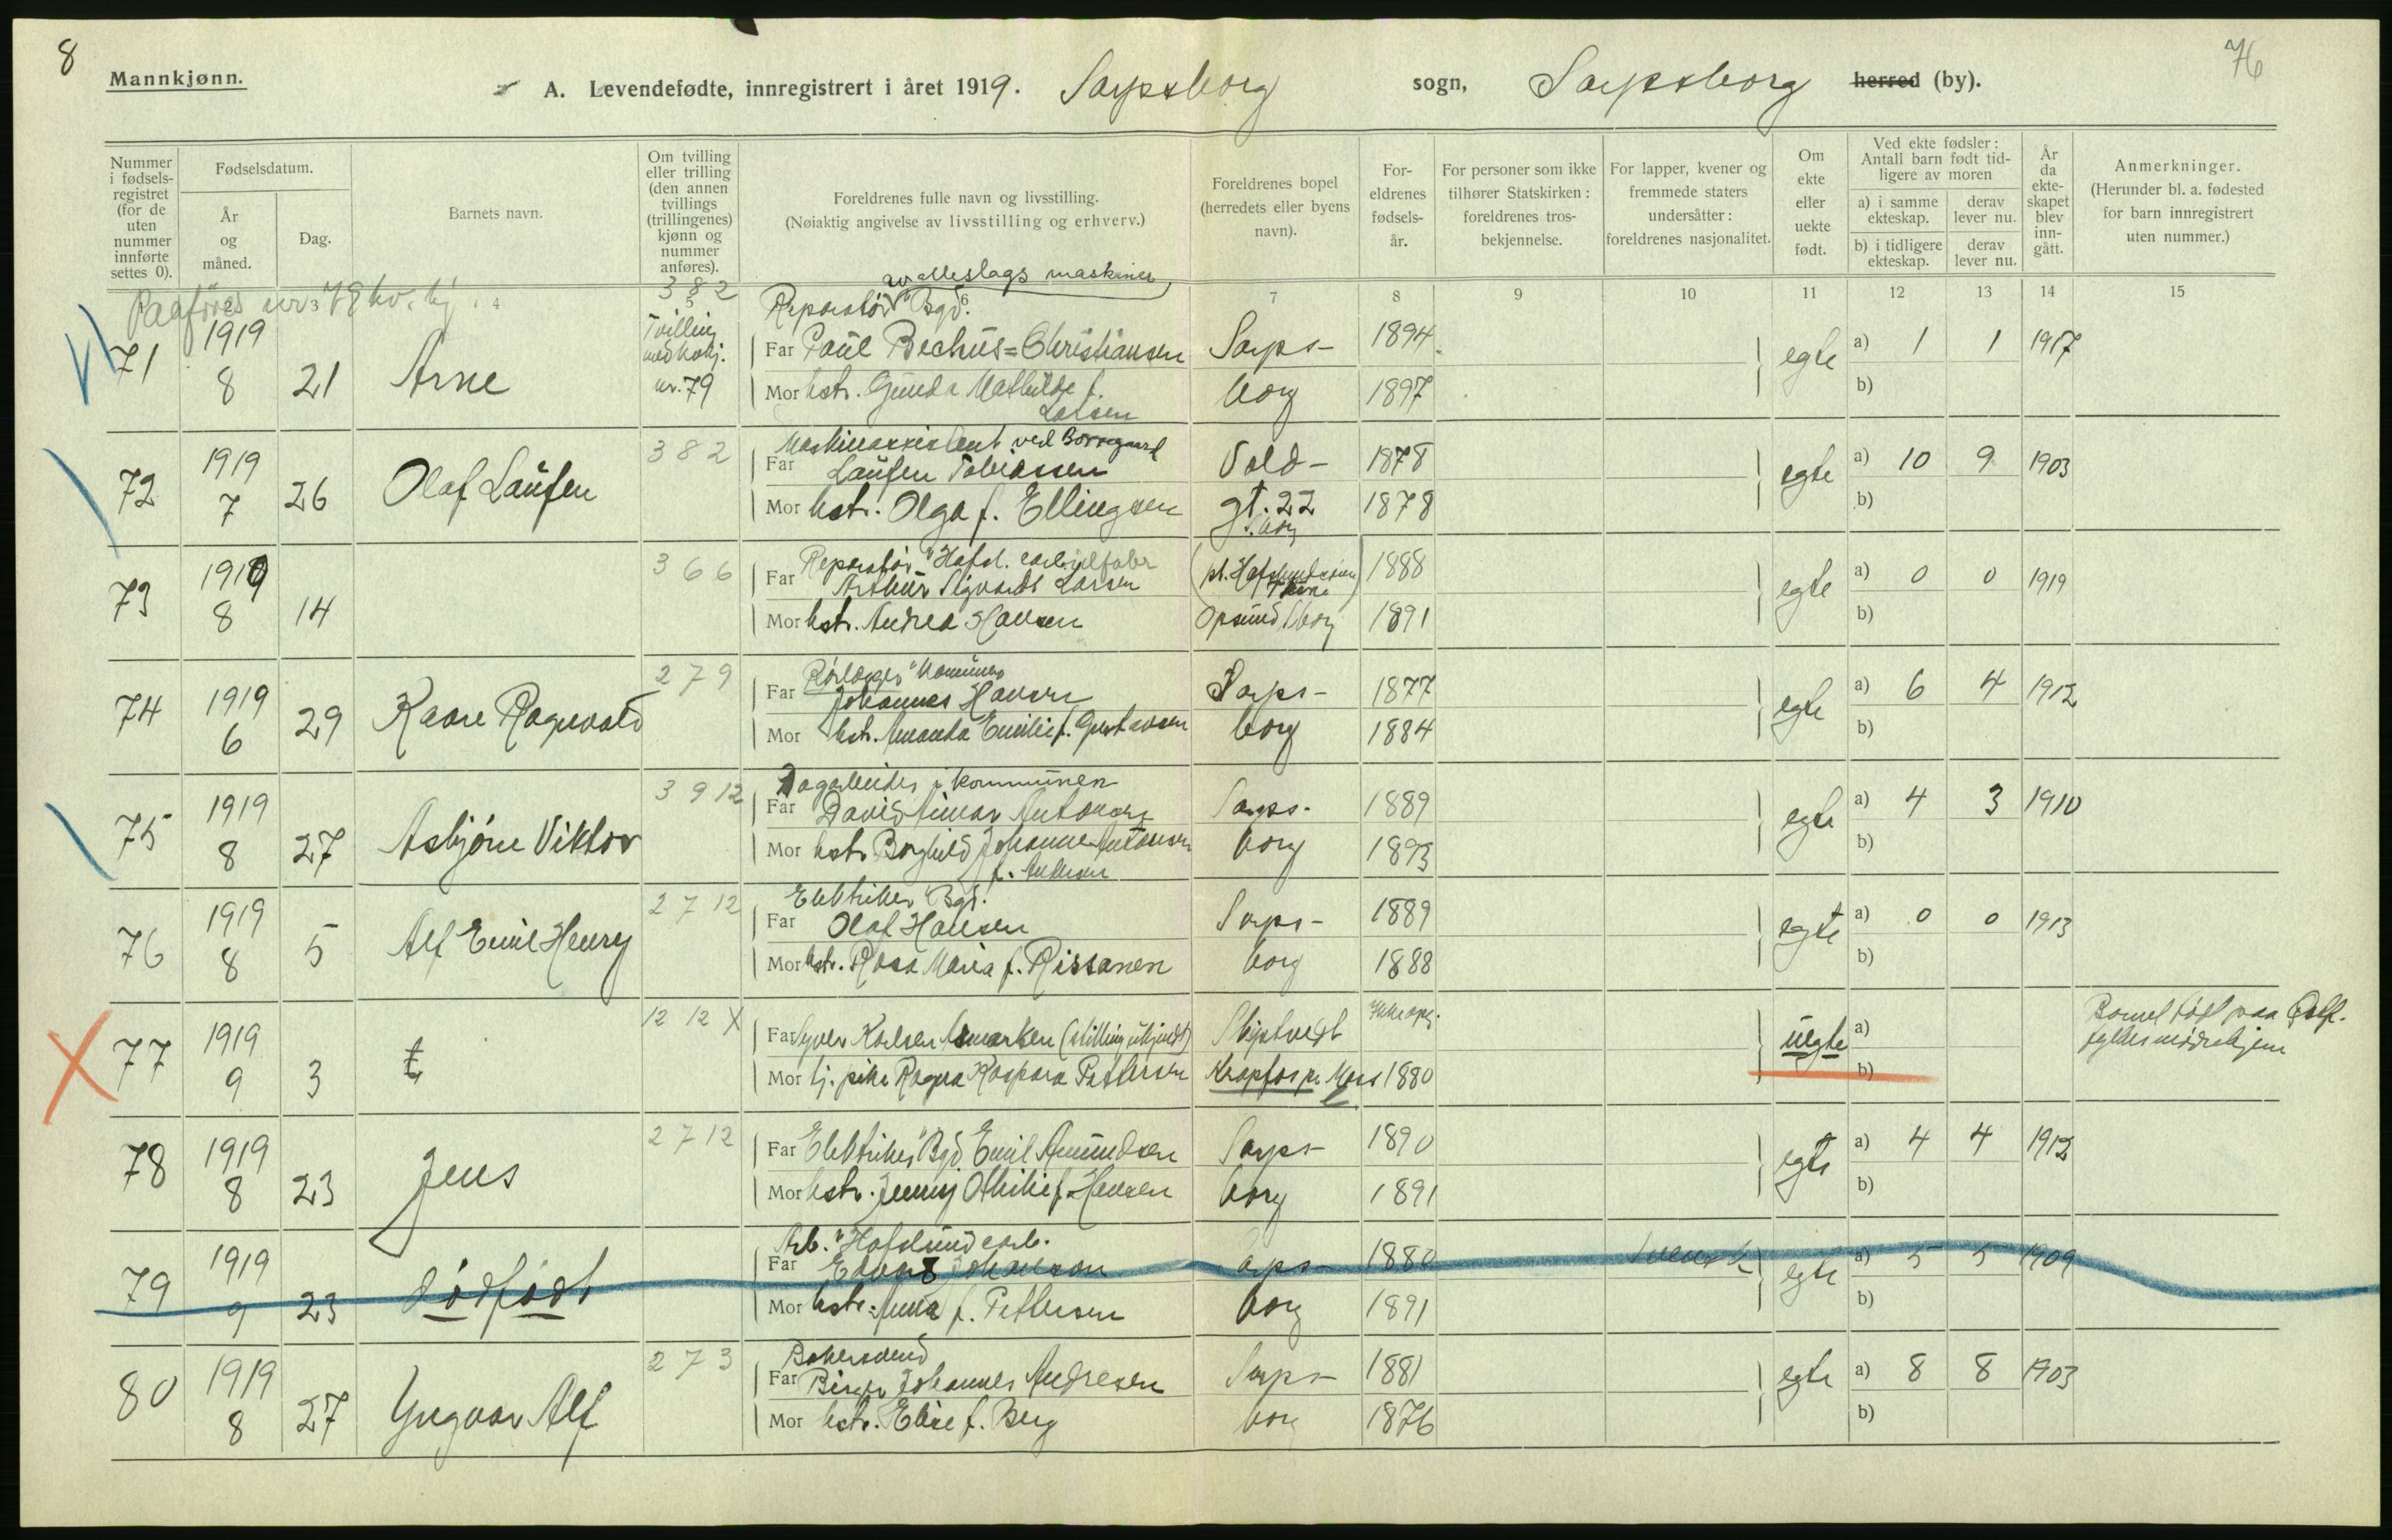 8
76
Mannkjønn.
A. Levendefødte, innregistrert i året 1919. Sarpsborg sogn, Sarpsborg herred (by).
Nummer i fødsels-registret (for de uten nummer innførte settes 0).
Fødselsdatum.
År og måned.
Dag.
Barnets navn.
Om tvilling eller trilling (den annen tvillings (trillingenes) kjønn og nummer anføres).
Foreldrenes fulle navn og livsstilling.
(Nøiaktig angivelse av livsstilling og erhverv.)
Foreldrenes bopel (herredets eller byens navn).
For-eldrenes fødsels-år.
For personer som ikke tilhører Statskirken: foreldrenes tros-bekjennelse.
For lapper, kvener og fremmede staters undersåtter: foreldrenes nasjonalitet.
Om ekte eller uekte født.
Ved ekte fødsler: Antall barn født tid-ligere av moren
a) i samme ekteskap.
derav lever nu.
b) i tidligere ekteskap.
derav lever nu.
År da ekte-skapet blev inn-gått.
Anmerkninger.
(Herunder bl. a. fødested for barn innregistrert uten nummer.)
3 4 6 7 8 9 10 11 12 13 14 15
382
av alleslags maskiner
Reparatør Bgd.
71 1919 8 21 Arne Tvilling med kvkj. nr. 79
Far Paul Bechus=Christiansen Sarps- 1894 egte a) 1 1 1917
Mor hstr. Gunda Mathilde f. Larsen borg 1897 b)
382
Maskinassistent ved Borregaard
72 1919 7 26 Olaf Laufen
Far Laufen Tobiassen Vold- 1878 egte a) 10 9 1903
Mor hstr. Olga f. Ellingsen gt. 22 S.borg 1878 b)
366
Reparatør Hafsl. carbidfabr
73 1919 8 14
Far Arthur Sigvardt Larsen 1888 egte a) 0 0 1919
Mor hstr. Andrea Hansen Opsund Sborg 1891 b)
279
Rørlægger Komunen
74 1919 6 29 Kaare Ragnvald
Far Johannes Hansen Sarps- 1877 egte a) 6 4 1912
Mor hstr. Amanda Emilie f. Gustavsen borg 1884 b)
3912
Dagarbeider i kommunen
75 1919 8 27 Asbjørn Viktor
Far David Antonsen Sarps- 1889 egte a) 4 3 1910
Mor hstr. Borghild Johanne Antonsen borg 1893 b)
2712
Elektriker Bgd.
76 1919 8 5 Alf Emil Henry
Far Olaf Hansen Sarps- 1889 egte a) 0 0 1913
Mor hstr. Rosa Maria f. Rissanen borg 1888 b)
12 12 X
77 1919 9 3 t
Far Syver Karlsen (stilling ukjendt) Skiptvedt Ikke opg. uegte a) Barnet født paa Østf. fylkes mødrehjem
Mor tj. pike Ragna Kaspara Pettersen Krapfos pr. Moss 1880 b)
2712
78 1919 8 23 Jens
Far Elektriker Bgd. Emil Amundsen Sarps- 1890 egte a) 4 4 1912
Mor hstr. Jenny Othilie f. Hansen borg 1891 b)
Arb. Hafslund carb.
79 1919 9 23 dødfødt
Far Edvard Johansson Sarps- 1880 Svensk egte a) 5 5 1909
Mor hstr. Anna f. Pettersen borg 1891 b)
273
Bakersvend
80 1919 8 27 Yngvar Alf
Far Birger Johannes Andresen Sarps- 1881 egte a) 8 8 1903
Mor hstr. Elise f. Berg borg 1876 b)